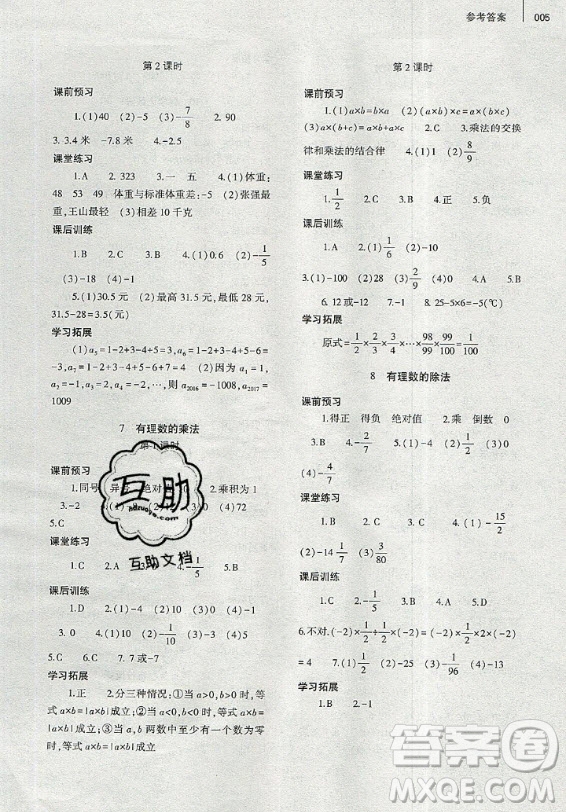 参考答案 005
第2课时
课前预习
1.(1)40 (2)-5 (3)-7/8 2. 90
3. 3.4米 -7.8米 4.-2.5
课堂练习
1.A 2.C 3.一 五 4.(1)体重:
48 53 49 体重与标准体重差:-5 (2)张强最
重,王山最轻 (3)相差10千克
课后训练
1.B 2.C 3.B 4.(1)0.6 (2)-1/5
(3)-18 (4)-1
5.(1)30.5元 (2)最高31.5元,最低28元,
31.5-28=3.5(元)
学习拓展
(1)a₅=1-2+3-4+5=3, a₆=1-2+3-4+5-6
=-3, a₇=1-2+3-4+5-6+7=4 (2)a₁=1,
a₂=1-2=-1, 则a₂₀₁₆=-1008, a₂₀₁₇=
1009
7 有理数的乘法
课时
课前预习
1.同号 2.乘积为1
3.-2 (4)72
5.C
课堂练习
1.C 2.A -1/5 5.B
课后训练
1.B 2.A 4.(1)-12(2)10 (3)0 (4)-1/10
3. 0 4.(1)10 (2)-10 (3)0 (4)-9
5.C 6.C 7.B
学习拓展
1.正 2.分三种情况:①当a>0,b>0时,等
式a×b=|a×b|成立;②当a<0,b<0时,等
式a×b=|a×b|成立;③当a、b两数中至少有一个数为零
时,等式a×b=|a×b|成立
第2课时
课前预习
1.(1)a×b=b×a (2)(a×b)×c=a×(b×c)
(3)a×(b+c)=a×b+a×c 2.C 3.乘法的交换
律和乘法的结合律 4.(1)1 (2)8/9
课堂练习
1.C 2.B 3.1/2 4.正 5.负
课后训练
1.A 2.(1)1/6 (2)-10
3.(1)-100 (2)8 (3)2/9 4.(1)0 (2)-1 5.D
6. 12或-12 7.-1 8. 25-5×6=-5(℃)
学习拓展
原式=1/2×3/2×2/3×4/3×3/4×…×98/99×100/99=1/2×100/99=50/99
8 有理数的除法
课前预习
1.得正 得负 绝对值 2.乘 倒数 0
3.(1)-2/7 (2)0 (3)-1/2
(4)-2/7
课堂练习
1.A 2.C 3.C 4.C 5.(1)-15/2
(2)-1/14 (3)3/80
课后训练
1.B 2.B 3.C 4.D 5.B
6.不对.(-2)×1/2÷1/2×(-2)=(-2)×1/2×2×(-2)
=4 7.(1)1/2 (2)-2 (3)-6 (4)-13
学习拓展
1.B 2.-1
互助
hdzuoye.com
互助文档
答案圈
MXQE.COM